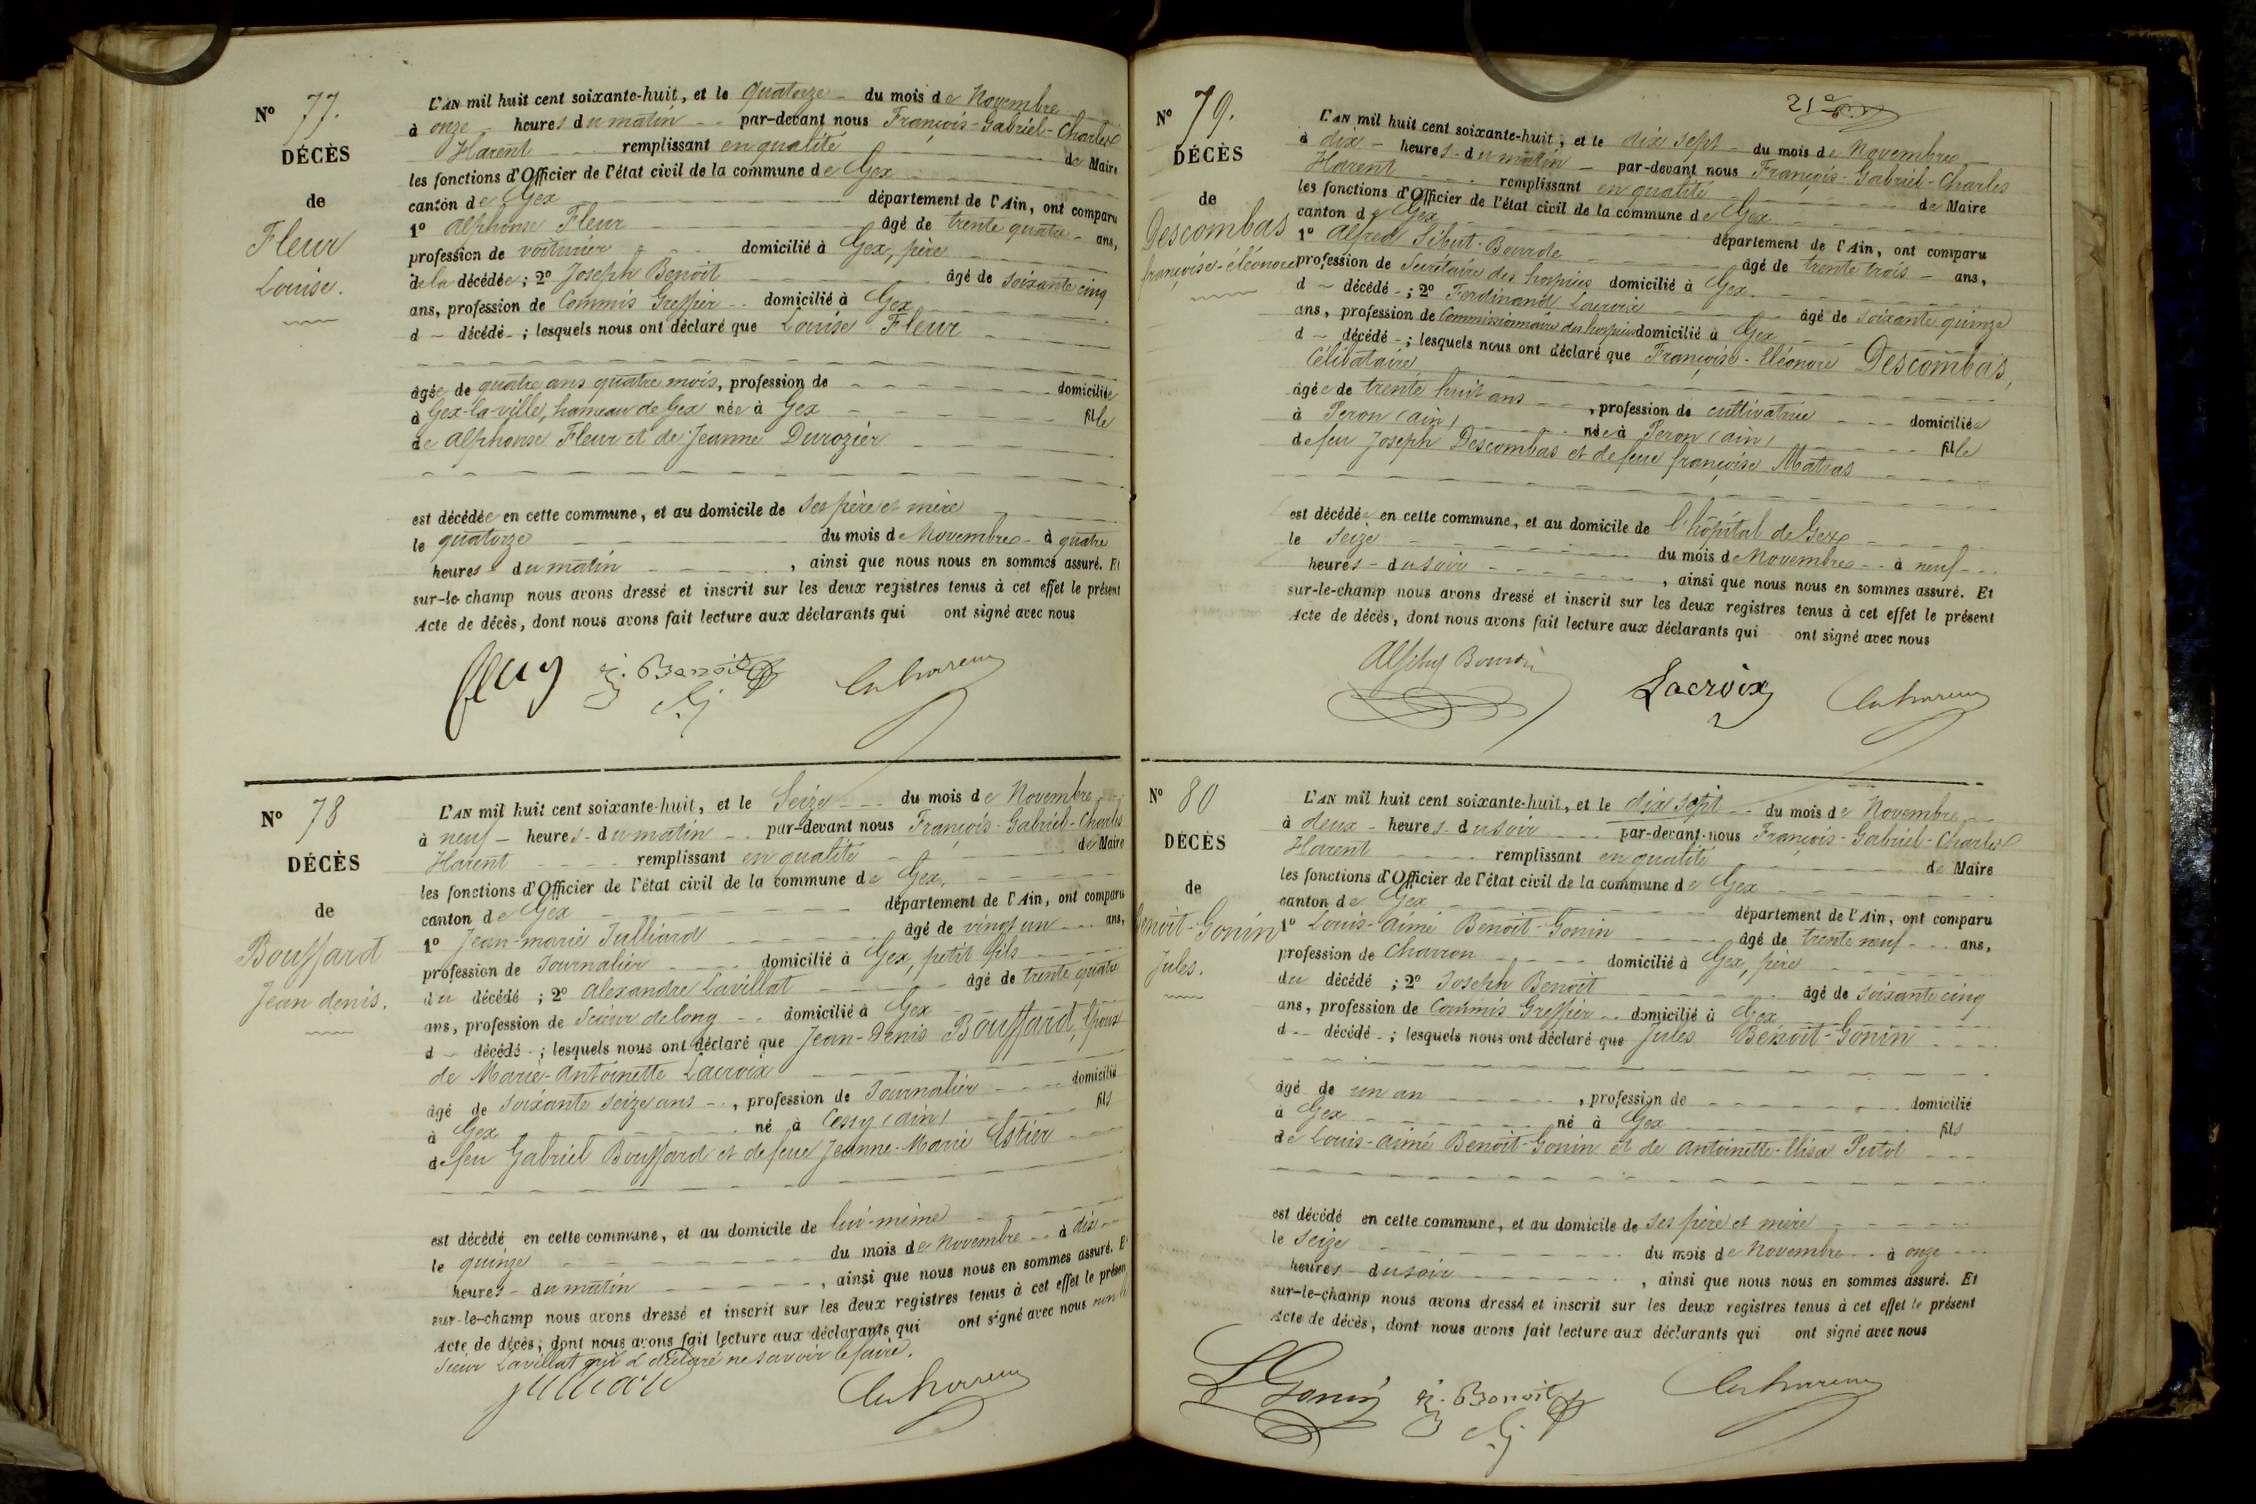 N° 77.
DÉCÈS
de
Fleur
Louise.
L'AN mil huit cent soixante-huit, et le quatorze du mois de Novembre
à onze heures du matin par-devant nous François-Gabriel-Charles
Harent remplissant en qualité de Maire
les fonctions d'Officier de l'état civil de la commune de Gex
canton de Gex département de l'Ain, ont comparu
1° Alphonse Fleur âgé de trente quatre ans,
profession de voiturier domicilié à Gex, père
de la décédée ; 2° Joseph Benoit âgé de soixante cinq
ans, profession de Commis Greffier domicilié à Gex
d décédé ; lesquels nous ont déclaré que Louise Fleur
âgée de quatre ans quatre mois, profession de domiciliée
à Gex-la-ville, hameau de Gex née à Gex fille
de Alphonse Fleur et de Jeanne Durozier
est décédée en cette commune, et au domicile de ses père et mère
le quatorze du mois de Novembre à quatre
heures du matin , ainsi que nous nous en sommes assuré. Et
sur-le-champ nous avons dressé et inscrit sur les deux registres tenus à cet effet le présent
Acte de décès, dont nous avons fait lecture aux déclarants qui ont signé avec nous
fleur j. Benoit
N° 78
DÉCÈS
de
Bouffard
Jean denis.
L'AN mil huit cent soixante-huit, et le Seize du mois de Novembre
à neuf heures du matin par-devant nous François-Gabriel-Charles
Harent remplissant en qualité de Maire
les fonctions d'Officier de l'état civil de la commune de Gex,
canton de Gex département de l'Ain, ont comparu
1° Jean-marie Julliard âgé de vingt un ans,
profession de Journalier domicilié à Gex, petit fils
du décédé ; 2° Alexandre Lavillat âgé de trente quatre
ans, profession de Scieur de long domicilié à Gex
d décédé ; lesquels nous ont déclaré que Jean-Denis Bouffard, Epoux
de Marie-Antoinette Lacroix
âgé de soixante seize ans , profession de Journalier domicilié
à Gex né à Cessy (ain) fils
de feu Gabriel Bouffard et de feue Jeanne-Marie Estier
est décédé en cette commune, et au domicile de lui-même
le quinze du mois de Novembre à dix
heures du matin , ainsi que nous nous en sommes assuré. Et
sur-le-champ nous avons dressé et inscrit sur les deux registres tenus à cet effet le présent
Acte de décès, dont nous avons fait lecture aux déclarants qui ont signé avec nous non le
sieur Lavillat qui a déclaré ne savoir le faire.
julliard
21e
N° 79.
DÉCÈS
de
Descombas
françoise-éléonore
L'AN mil huit cent soixante-huit, et le dix sept du mois de Novembre
à dix heures du matin par-devant nous François-Gabriel-Charles
Harent remplissant en qualité de Maire
les fonctions d'Officier de l'état civil de la commune de Gex
canton de Gex département de l'Ain, ont comparu
1° Alfred Sibut-Bourde âgé de trente trois ans,
profession de Secrétaire des hospices domicilié à Gex
d décédé ; 2° Ferdinand Lacroix âgé de soixante quinze
ans, profession de Commissionnaire des hospices domicilié à Gex
d décédé ; lesquels nous ont déclaré que Françoise-Eléonore Descombas,
Célibataire
âgée de trente huit ans , profession de cultivatrice domiciliée
à Peron (ain) née à Peron (ain) fille
de feu Joseph Descombas et de feue françoise Matras
est décédée en cette commune, et au domicile de l'hôpital de Gex
le Seize du mois de Novembre à neuf
heures du soir , ainsi que nous nous en sommes assuré. Et
sur-le-champ nous avons dressé et inscrit sur les deux registres tenus à cet effet le présent
Acte de décès, dont nous avons fait lecture aux déclarants qui ont signé avec nous
Lacroix
N° 80
DÉCÈS
de
Benoit-Gonin
Jules.
L'AN mil huit cent soixante-huit, et le dix sept du mois de Novembre
à deux heures du soir par-devant nous François-Gabriel-Charles
Harent remplissant en qualité de Maire
les fonctions d'Officier de l'état civil de la commune de Gex
canton de Gex département de l'Ain, ont comparu
1° Louis-aimé Benoit-Gonin âgé de trente neuf ans,
profession de Charron domicilié à Gex, père
du décédé ; 2° Joseph Benoit âgé de soixante cinq
ans, profession de Commis Greffier domicilié à Gex
d décédé ; lesquels nous ont déclaré que Jules Benoit-Gonin
âgé de un an , profession de domicilié
à Gex né à Gex fils
de Louis-aimé Benoit-Gonin et de Antoinette-Elisa Putot
est décédé en cette commune, et au domicile de ses père et mère
le Seize du mois de Novembre à onze
heures du soir , ainsi que nous nous en sommes assuré. Et
sur-le-champ nous avons dressé et inscrit sur les deux registres tenus à cet effet le présent
Acte de décès, dont nous avons fait lecture aux déclarants qui ont signé avec nous
L Gonin j. Benoit